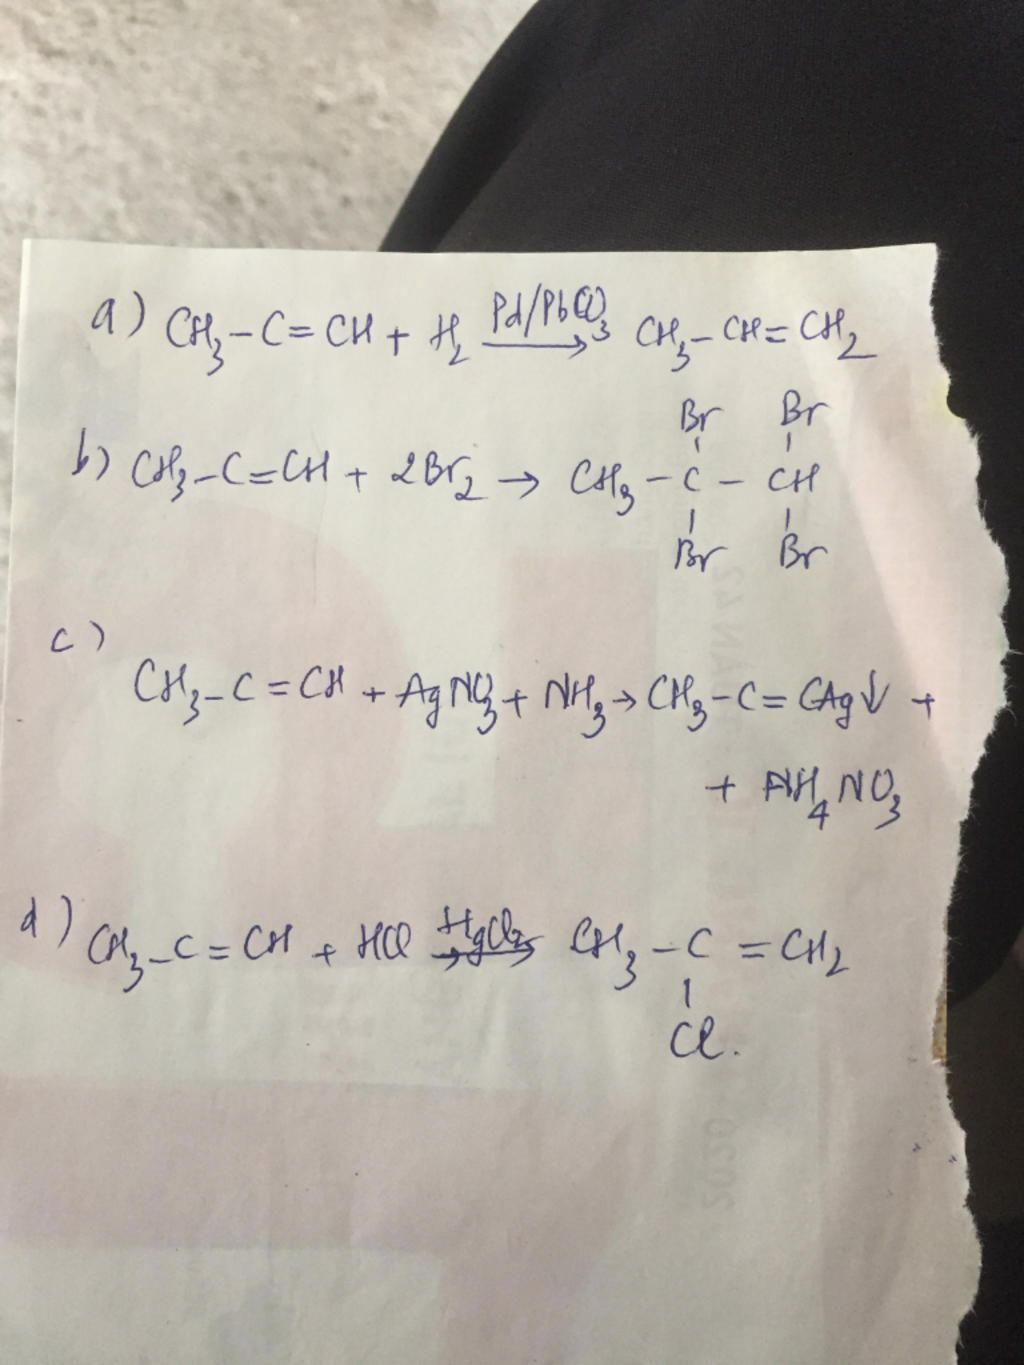 a) CH3-C=CH + H2 Pd/PbCO3→ CH3-CH=CH2
Br Br
b) CH3-C=CH + 2Br2 → CH3-C-CH
Br Br
c)
CH3-C=CH + AgNO3 + NH3 → CH3-C=CAg↓ +
+ NH4NO3
d) CH3-C=CH + HCl HgCl2→ CH3-C=CH2
Cl.